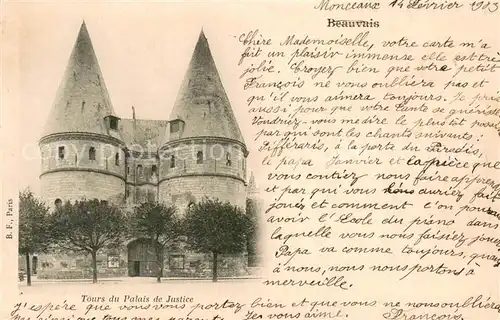 Monceaux 14 Février 1903
Beauvais
Chère Mademoiselle, votre carte m'a
fait un plaisir immense elle est très
jolie. Croyez bien que votre petit
François ne vous oubliera pas et
qu'il vous aimera toujours. Je prie
aussi pour que votre tante se guérisse.
Voudriez-vous me dire le plus tôt possi
par qui sont les chants suivants.
à la porte du Paradis,
le papa Janvier et la pièce que
vous contiez nous faire appren
et par qui vous auriez fait
et comment c'on pour
avoir l'École du piano dans
laquelle vous nous faisiez jouer
Papa va comme toujours, quant
à nous, nous nous portons à
merveille.
B. F., Paris
Tours du Palais de Justice
J'espère que vous vous portez bien et que vous ne nous oubliere
que tous mes parents. Je vous aime. François